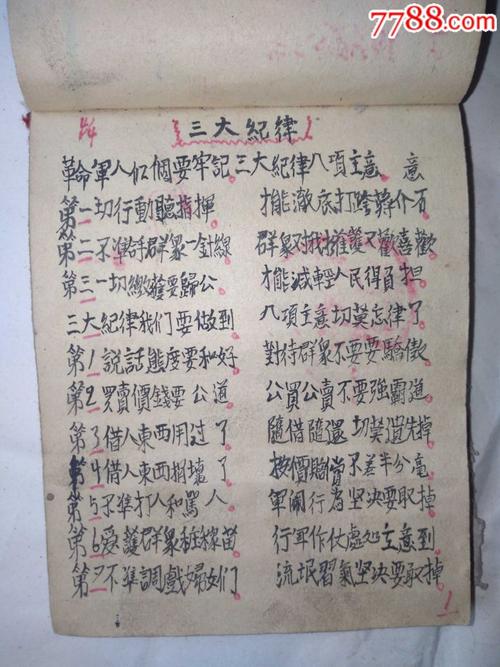 7788.com
三大紀律
革命軍人個要牢記 三大紀律八項主意 意
第一切行動聽指揮 才能澈底打垮蔣介石
第二不準群象一針線 群象对我擁護又歡喜歡
第三一切繳獲要歸公 才能減輕人民得負担
三大紀律我们要做到 八項主意切莫忘律了
第1説話態度要和好 對待群象不要要驕傲
第2買賣價錢要公道 公買公賣不要強霸道
第3借人東西用过了 隨借隨還切莫遺失掉
第4借人東西損壞了 按價賠賞不差半分毫
第5不準打人和罵人 軍閥行為坚决要取掉
第6爱護群象和莊稼苗 行軍作仗處处主意到
第7不準調戲婦女们 流氓習氣坚决要取掉
1